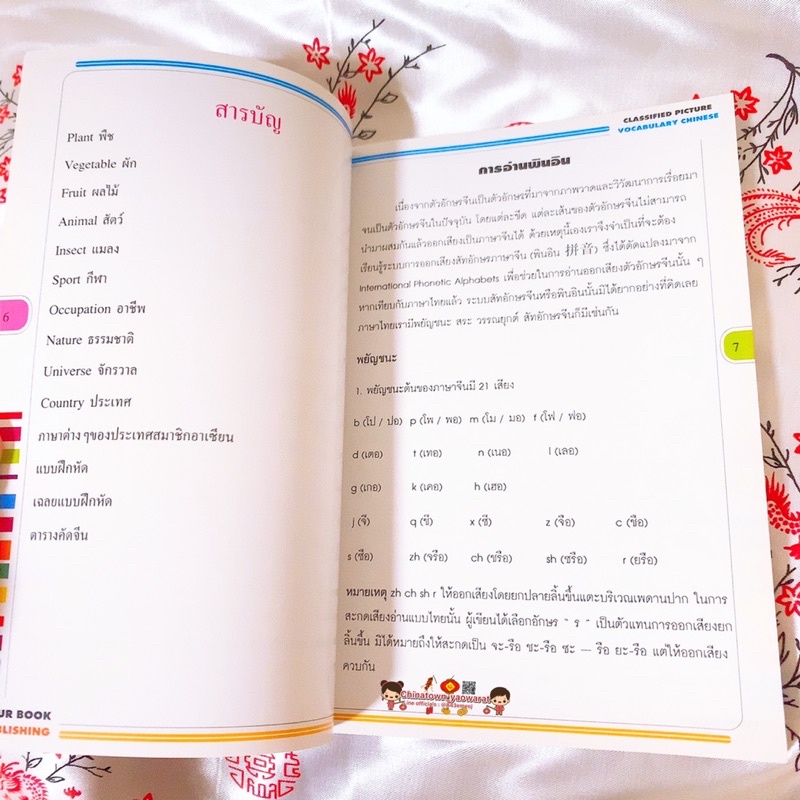 สารบัญ
Plant พืช
Vegetable ผัก
Fruit ผลไม้
Animal สัตว์
Insect แมลง
Sport กีฬา
Occupation อาชีพ
Nature ธรรมชาติ
Universe จักรวาล
Country ประเทศ
ภาษาต่างๆของประเทศสมาชิกอาเซียน
แบบฝึกหัด
เฉลยแบบฝึกหัด
ตารางคัดจีน
6
UR BOOK
BLISHING
CLASSIFIED PICTURE
VOCABULARY CHINESE
การอ่านพินอิน
เนื่องจากตัวอักษรจีนเป็นตัวอักษรที่มาจากภาพวาดและวิวัฒนาการเรื่อยมา
จนเป็นตัวอักษรจีนในปัจจุบัน โดยแต่ละขีด แต่ละเส้นของตัวอักษรจีนไม่สามารถ
นำมาผสมกันแล้วออกเสียงเป็นภาษาจีนได้ ด้วยเหตุนี้เองเราจึงจำเป็นที่จะต้อง
เรียนรู้ระบบการออกเสียงสัทอักษรภาษาจีน (พินอิน 拼音) ซึ่งได้ดัดแปลงมาจาก
International Phonetic Alphabets เพื่อช่วยในการอ่านออกเสียงตัวอักษรจีนนั้น ๆ
หากเทียบกับภาษาไทยแล้ว ระบบสัทอักษรจีนหรือพินอินนั้นมิได้ยากอย่างที่คิดเลย
ภาษาไทยเรามีพยัญชนะ สระ วรรณยุกต์ สัทอักษรจีนก็มีเช่นกัน
7
พยัญชนะ
1. พยัญชนะต้นของภาษาจีนมี 21 เสียง
b (โป / ปอ) p (โพ / พอ) m (โม / มอ) f (โฟ / ฟอ)
d (เตอ) t (เทอ) n (เนอ) l (เลอ)
g (เกอ) k (เคอ) h (เฮอ)
j (จี) q (ชี) x (ซี) z (จือ) c (ชือ)
s (ซือ) zh (จรือ) ch (ชรือ) sh (ซรือ) r (ยรือ)
หมายเหตุ zh ch sh r ให้ออกเสียงโดยยกปลายลิ้นขึ้นแตะบริเวณเพดานปาก ในการ
สะกดเสียงอ่านแบบไทยนั้น ผู้เขียนได้เลือกอักษร " ร " เป็นตัวแทนการออกเสียงยก
ลิ้นขึ้น มิได้หมายถึงให้สะกดเป็น จะ-รือ ชะ-รือ ซะ – รือ ยะ-รือ แต่ให้ออกเสียง
ควบกัน
Chinatown_yaowarat